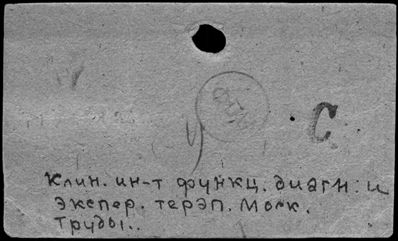 С
Клин. ин-т функц. диагн. и
экспер. терап. Моск.
Труды..